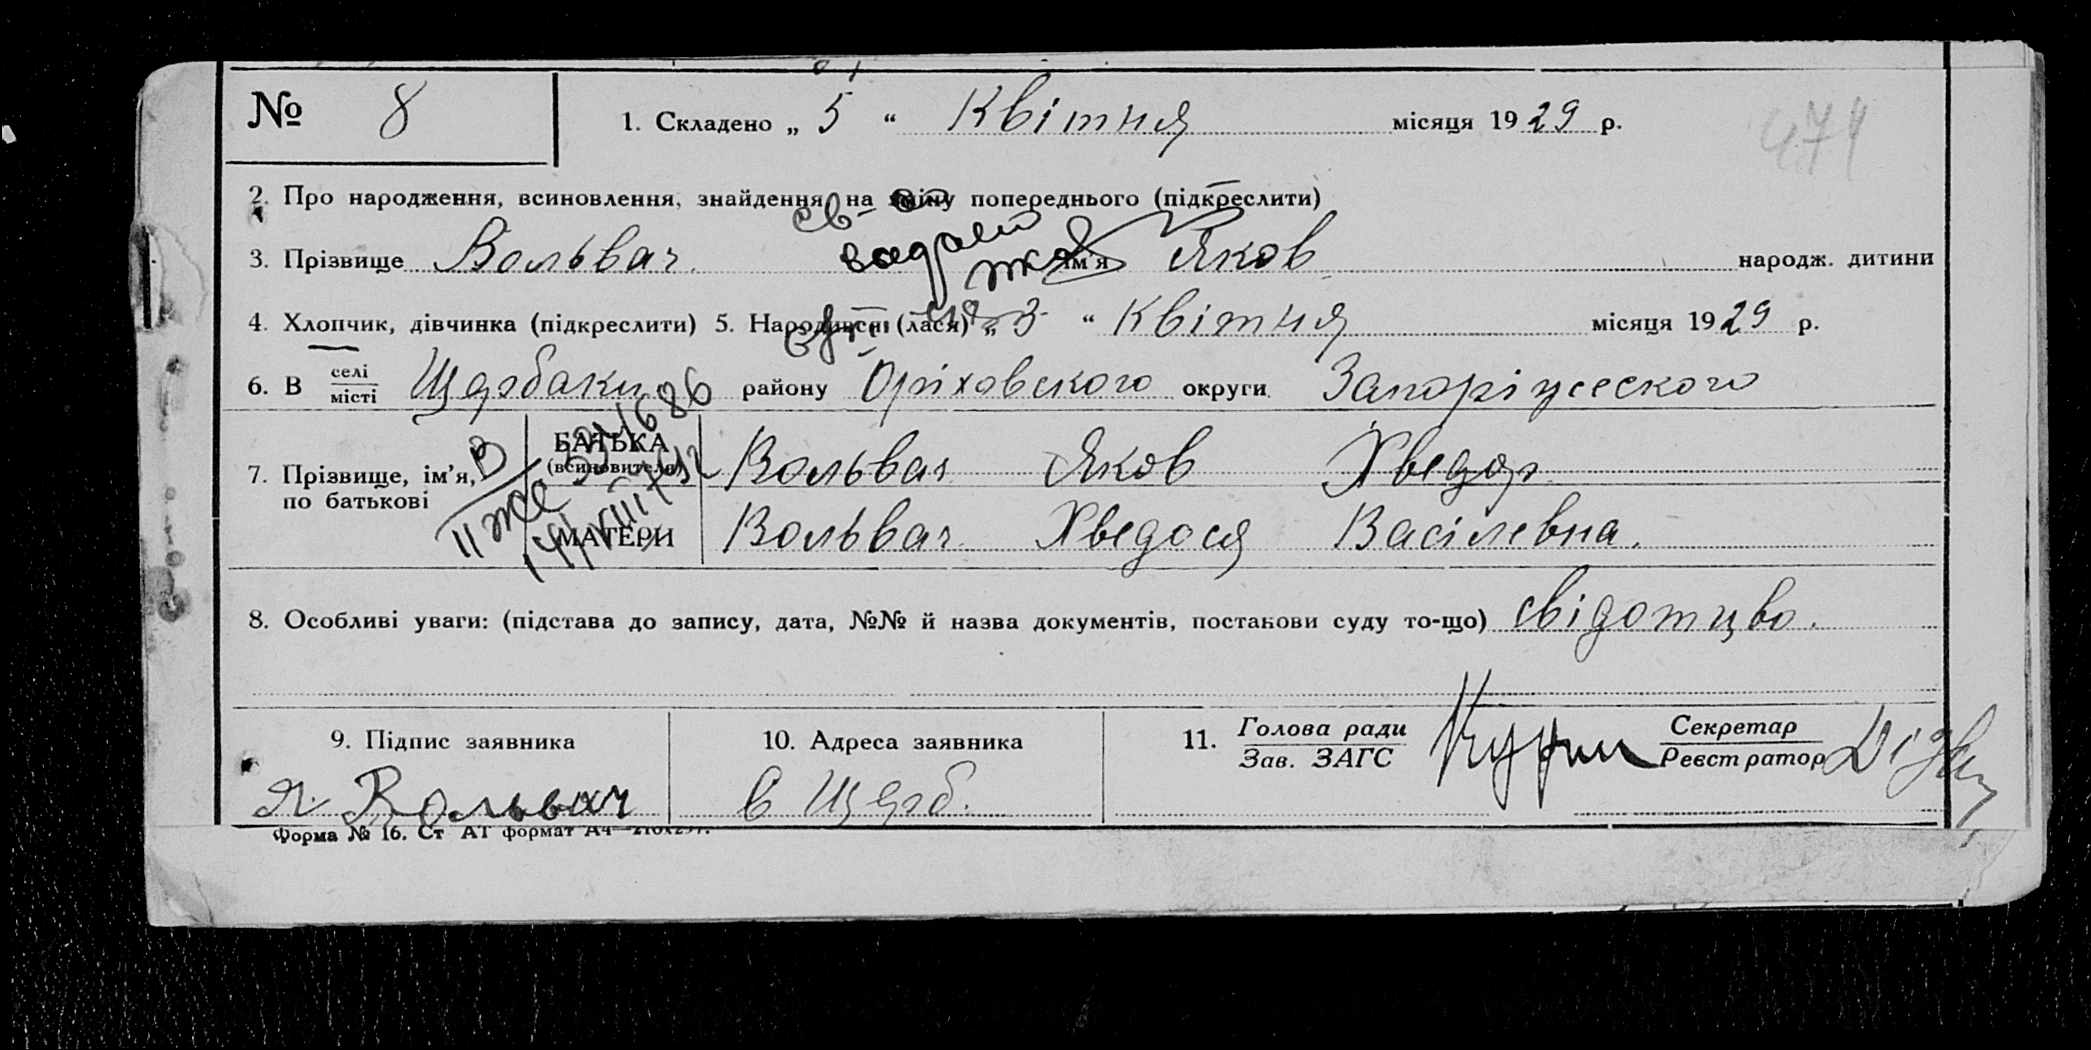 № 8 1. Складено „ 5 “ Квітня місяця 1929 р.
474
2. Про народження, всиновлення, знайдення, на зміну попереднього (підкреслити)
3. Прізвище Вольвач ім'я Яков народж. дитини
4. Хлопчик, дівчинка (підкреслити) 5. Народився (лася) „ 3 “ Квітня місяця 1929 р.
6. В селі місті Щербаки району Оріховского округи Запоріжеского
7. Прізвище, ім'я, по батькові
БАТЬКА (всиновителя) Вольвач Яков Хведор
МАТЕРИ Вольвач Хведося Васілевна.
II ЖС 321686
8. Особливі уваги: (підстава до запису, дата, №№ й назва документів, постанови суду то-що) свідотцво.
9. Підпис заявника 10. Адреса заявника 11. Голова ради Зав. ЗАГС Секретар Реєстратор
Я. Вольвач в Щерб.
Форма № 16. Ст АТ формат А4—210х297.